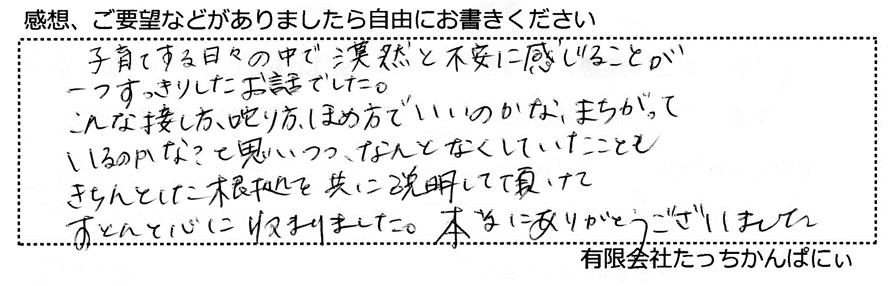 感想、ご要望などがありましたら自由にお書きください
子育てする日々の中で漠然と不安に感じることが
一つすっきりしたお話でした。
こんな接し方、叱り方、ほめ方でいいのかな、まちがって
いるのかな？と思いつつ、なんとなくしていたことも
きちんとした根拠と共に説明して頂けて
すとんと心に収まりました。本当にありがとうございました
有限会社たっちかんぱにぃ